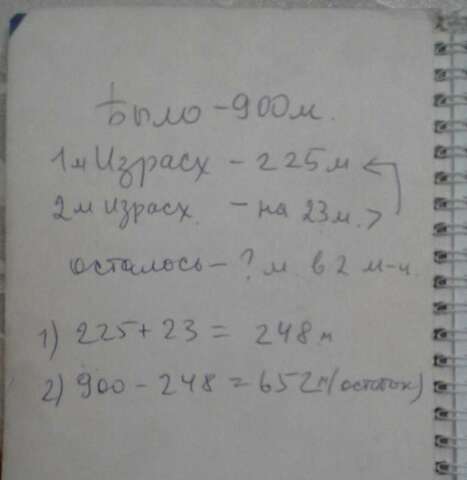 Было - 900 м.
1 м Израсх - 225 м
2 м израсх. - на 23 м. >
осталось - ? м. в 2 м-ч.
1) 225 + 23 = 248 м
2) 900 - 248 = 652 м (остаток)